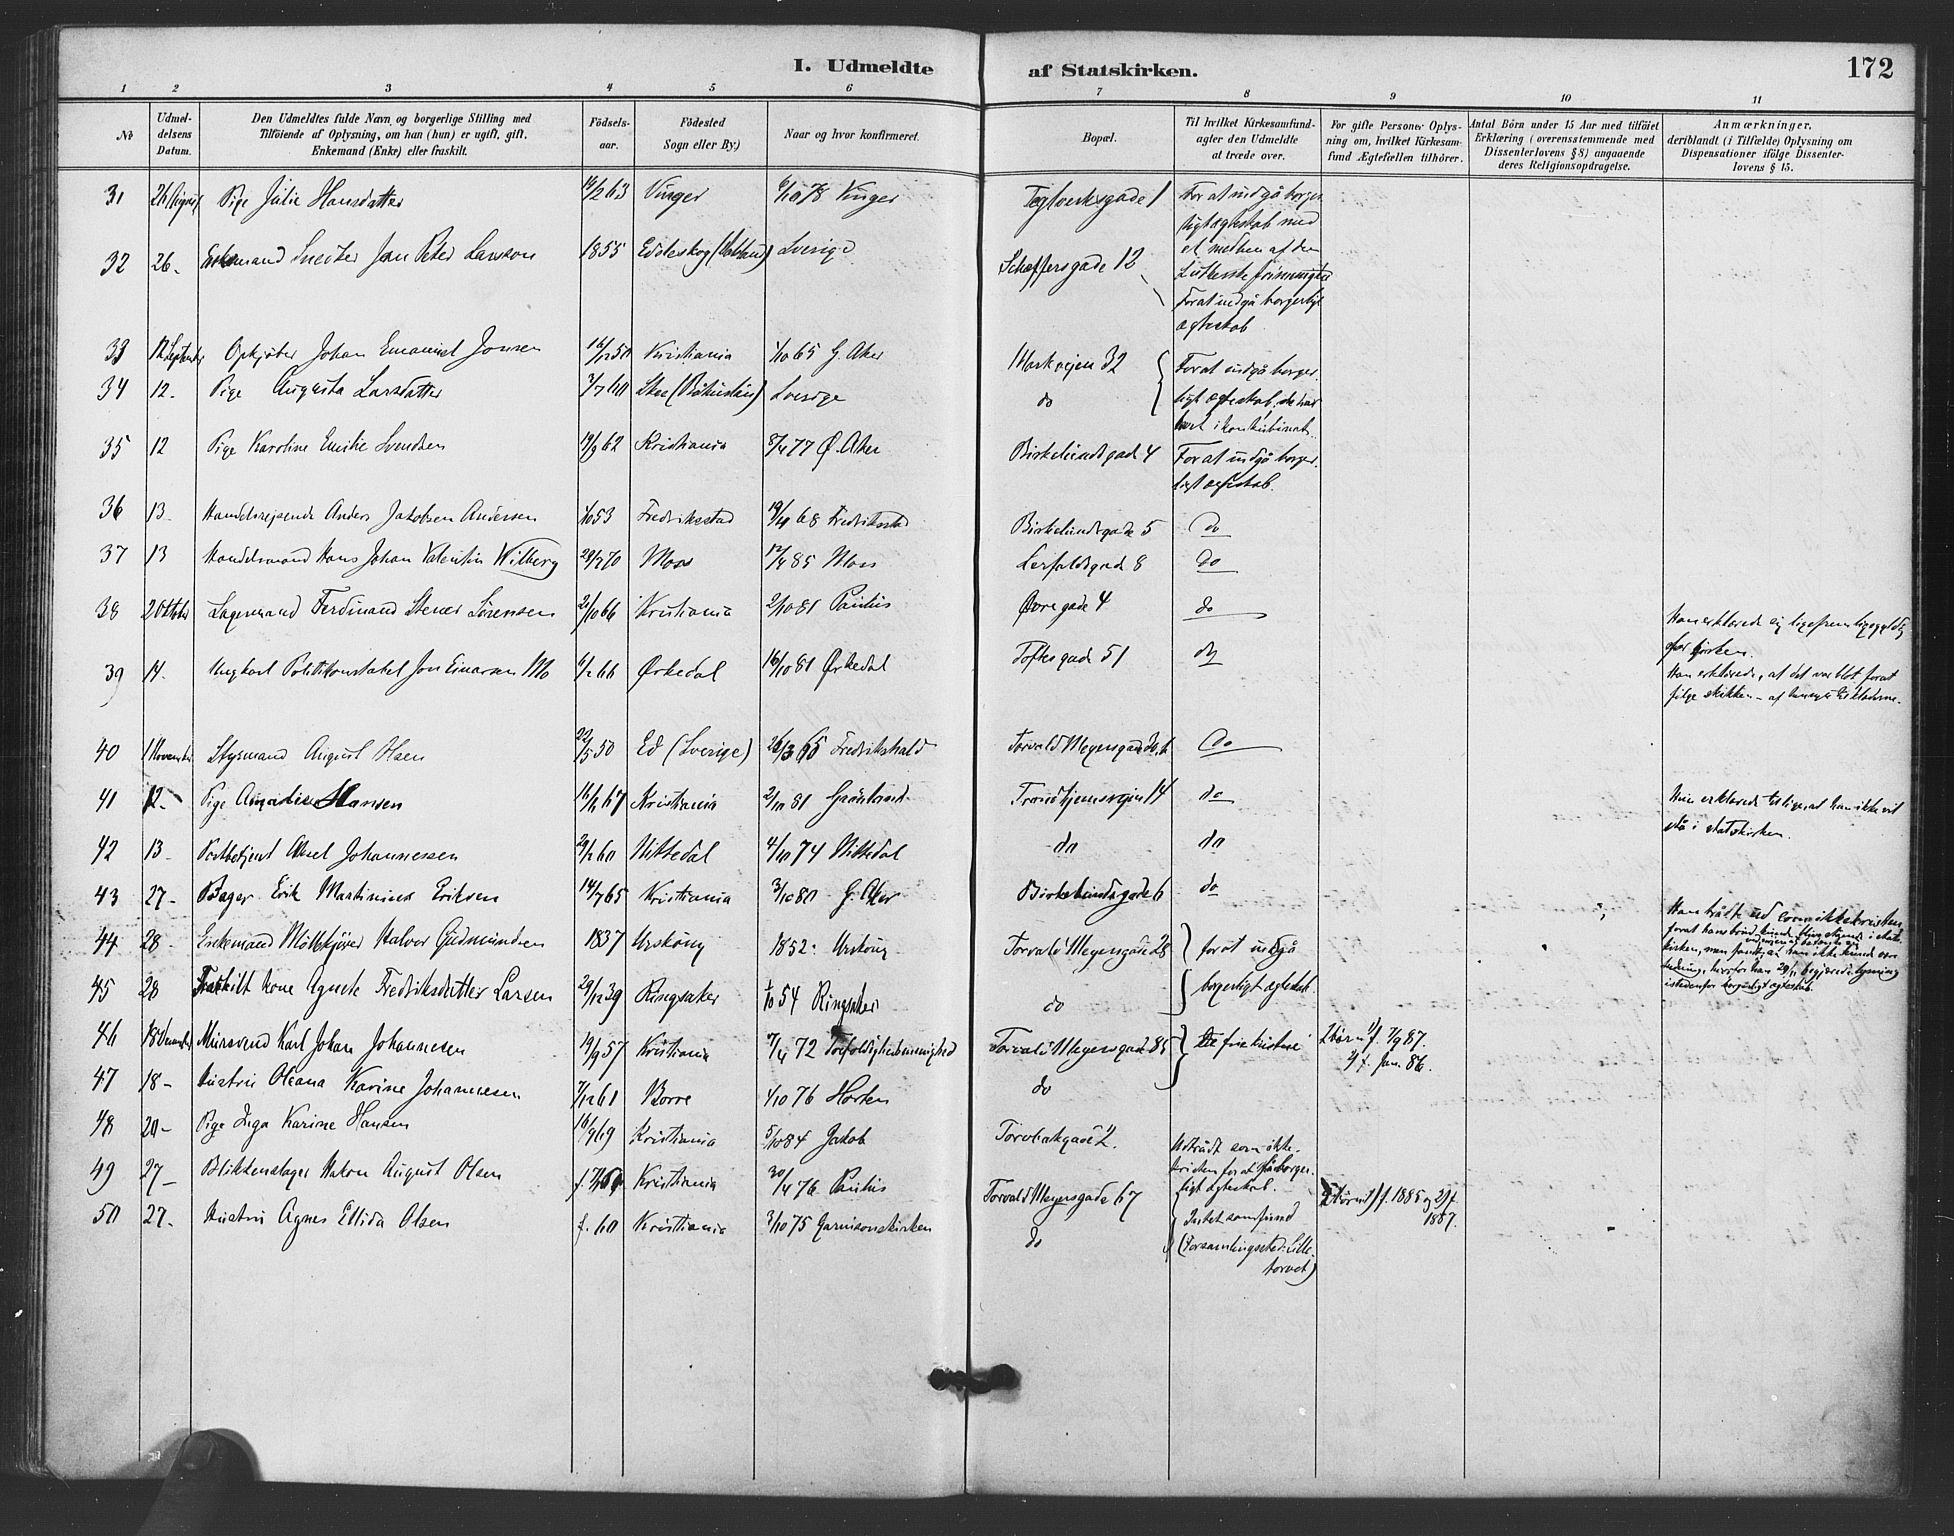 I. Udmeldte af Statskirken. 172
1 2 3 4 5 6 7 8 9 10 11
No Udmeldelsens Datum. Den Udmeldtes fulde Navn og borgerlige Stilling med Tilföiende af Oplysning, om han (hun) er ugift, gift, Enkemand (Enke) eller fraskilt. Födselsaar. Födested Sogn eller By.) Naar og hvor konfirmeret. Bopæl. Til hvilket Kirkesamfund agter den Udmeldte at træde over. For gifte Personer Oplysning om, hvilket Kirkesamfund Ægtefællen tilhörer. Antal Börn under 15 Aar med tilföiet Erklæring (overensstemmende med Dissenterlovens § 8) angaaende deres Religionsopdragelse. Anmærkninger, deriblandt (i Tilfælde) Oplysning om Dispensationer ifölge Dissenterlovens § 15.
31 Pige Julie Hansdatter 63 Vinger 6/10 78 Vinger Teglverksgade 1 For at indgå borgerligt ægteskab med et medlem af den Lutherske frimenighed
32 26. Enkemand Snedker Jan Peter Larsson 1855 Edsleskog Sverige Schæffersgade 12 For at indgå borgerligt ægteskab
33 12 September Opkjøber Johan Emanuel Jonsen 16/12 50 Kristiania 1/10 65 G. Aker Markvejen 32 For at indgå borgerligt ægteskab, de har levet i konkubinat.
34 12. Pige Augusta Larsdatter 3/7 60 Sverige do
35 12 Pige Karoline Emilie Svendsen 19/9 62 Kristiania 8/4 77 Ø. Aker Birkelundsgade 4 For at indgå borgerligt ægteskab.
36 13. Handelsrejsende Anders Jakobsen Andersen 53 Fredriksstad 19/4 68 Fredriksstad Birkelundsgade 5 do
37 13 Handelsmand Hans Johan Valentin Wilberg 29/7 70 Moss 12/4 85 Moss Lerfaldsgade 8 do
38 2 Oktober Lagermand Ferdinand Stener Sørensen 21/10 66 Kristiania 2/10 81 Paulus Øvregade 4 do Han erklærede sig ligefrem ligegyldig for kirken.
39 14. Ungkarl Politikonstabel Jon Einarsen Mo 6/2 66 Ørkedal 16/10 81 Ørkedal Toftesgade 51 do Han erklærede, at det var blot forat følge skikken
40 1 November Styrmand August Olsen 22/5 50 Ed (Sverige) 26/3 65 Fredrikshald Torvald Meyersgade do
41 12. Pige Hansen 67 Kristiania 2/10 81 Grønland Trondhjemsvejen 14 do Hun erklærede at hun ikke vil stå i statskirken.
42 13. Postbetjent Axel Johannessen 29/2 60 Nittedal 4/10 74 Nittedal do do
43 27. Bager Erik Martinius Eriksen 14/7 65 Kristiania 3/10 80 G. Aker Birkelundsgade 6 do
44 28. Enkemand Mölkjører Halvor Gudmundsen 1837 Urskoug 1852. Urskoug Torvald Meyersgade 28 for at indgå borgerligt ægteskab. Han trådte ud som ikkekristen forat hans brud kunde blive stående i statskirken, men han ikke kunde hvorfor han 29/11 begjærede lysning istedenfor borgerligt ægteskab.
45 28 Fraskilt Kone Agnete Fredriksdatter Larsen 29/12 39 Ringsaker 1/10 54 Ringsaker do
46 18 December Mursvend Karl Johan Johannesen 19/9 57 Kristiania 7/4 72 Trefoldighedsmenighed Torvald Meyersgade 85 De frie kristne 2 børn 1) f. 7/9 87. 2) f. Jan. 86.
47 18. Hustru Oleana Karine Johannesen 7/12 61 Borre 1/10 76 Horten do
48 20. Pige Inga Karine Hansen 16/9 69 Kristiania 5/10 84 Jakob 2. Udtrådt som ikke kristen for at få borgerligt ægteskab.
49 27. Blikkenslager Hakon August Olsen Kristiania 30/4 76 Paulus Torvald Meyersgade 67 Intet samfund (Forsamlingssted: Lilletorvet) 2 børn 1) f. 1885 og 2) f. 1887.
50 27. Hustru Agnes Ellida Olsen f. 60 Kristiania 3/10 75 Garnisonskirken do